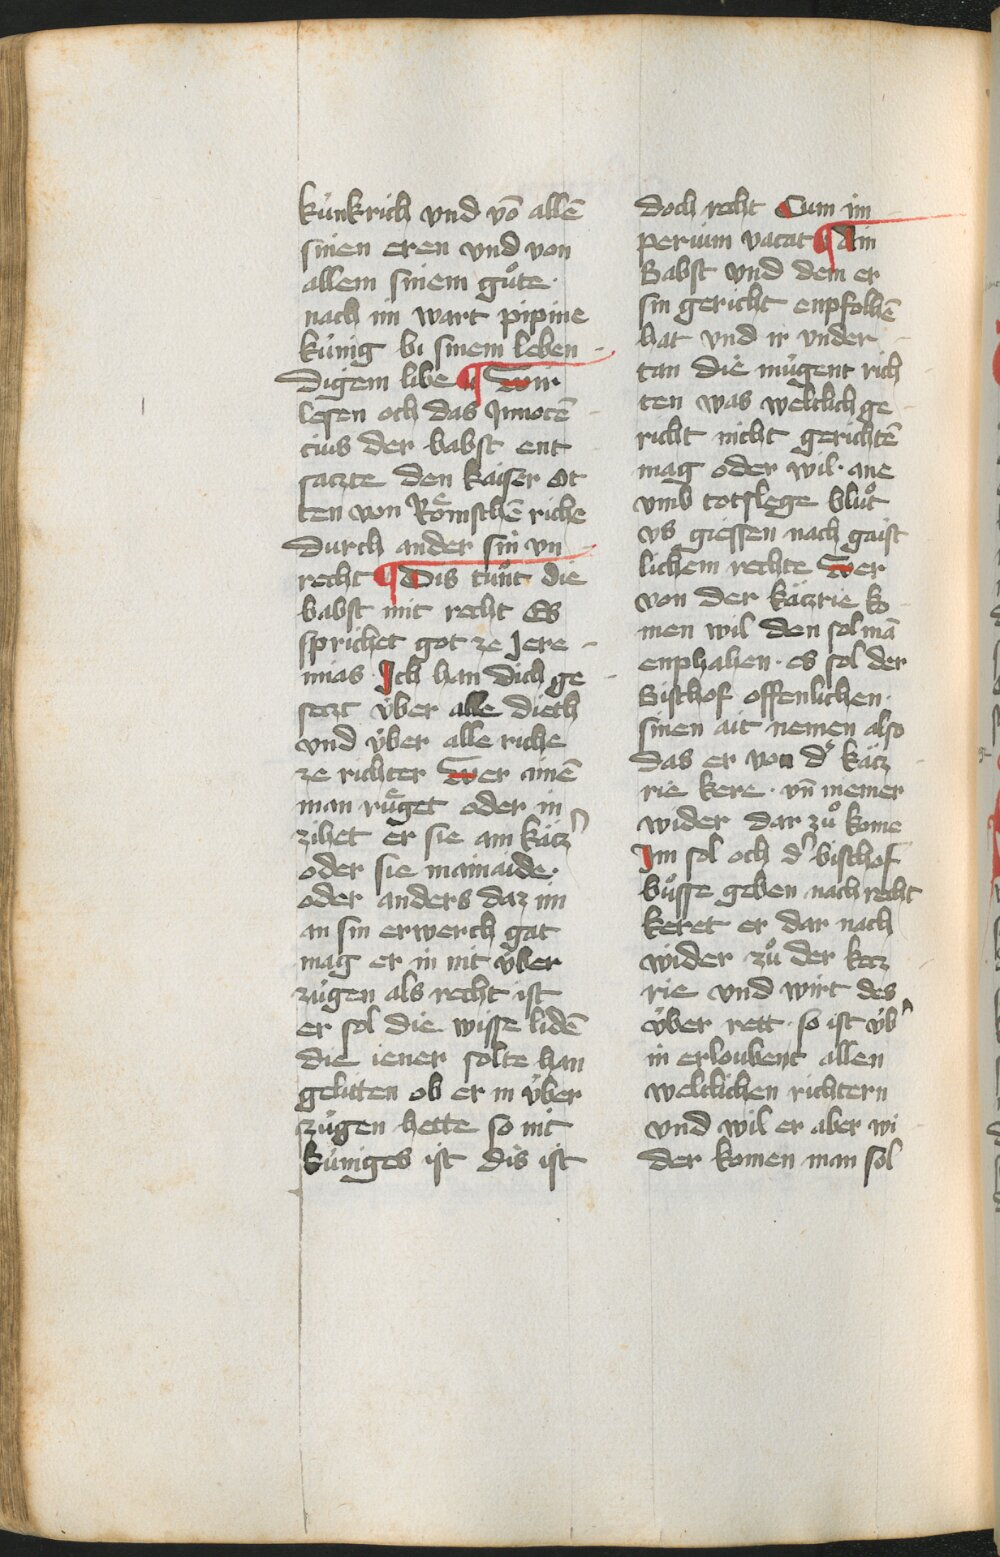 kúnkrich vnd võ allē
sinen eren vnd von
allem sinem gůte·
nach im wart pipine
kúnig bi sinem leben
digem libe ¶ Wir
lesen och das Innocē
cius der babst ent
saczte den kaiser Ot
ten von Rômschē riche
durch ander sin vn
recht ¶ Dis tůnt die
babst mit recht Es
sprichet got ze Jere
mias Ich han dich ge
seczt v́ber alle dieth
vnd v́ber alle riche
ze richter Wer ainē
man rûget oder in
zihet er sie ain käcz
oder sie mainaide·
oder anders daz im
an sin erwerch gat
mag er in nit v́ber
zúgen als recht ist
er sol die wisse lidē
die iener solte han
gelitten ob er in v́ber
zúgen hette so nit
kúniges ist dis ist
doch recht Cum im
perium vacat ¶ Ain
Babst vnd dem er
sin gericht enpfolhē
hat vnd ir vnder
tan die múgent rich
ten was weltlich ge
richt nicht gerichtē
mag oder wil· ane
vmb totslege blůt
vs giessen nach gaist
lichem rechte Wer
von der käczrie ko
men wil den sol mā
enphahen· es sol der
Bischof offenlichen·
sinen ait nemen also
das er von d' käcz
rie kere· vn̄ niemer
wider dar zů kome
Im sol och d' bischof
bůsse geben nach recht
keret er dar nach
wider zů der kecz
rie vnd wirt des
v́ber rett· so ist v́b'
in erloubent allen
weltlichen richtern
vnd wil er aber wi
der komen man sol